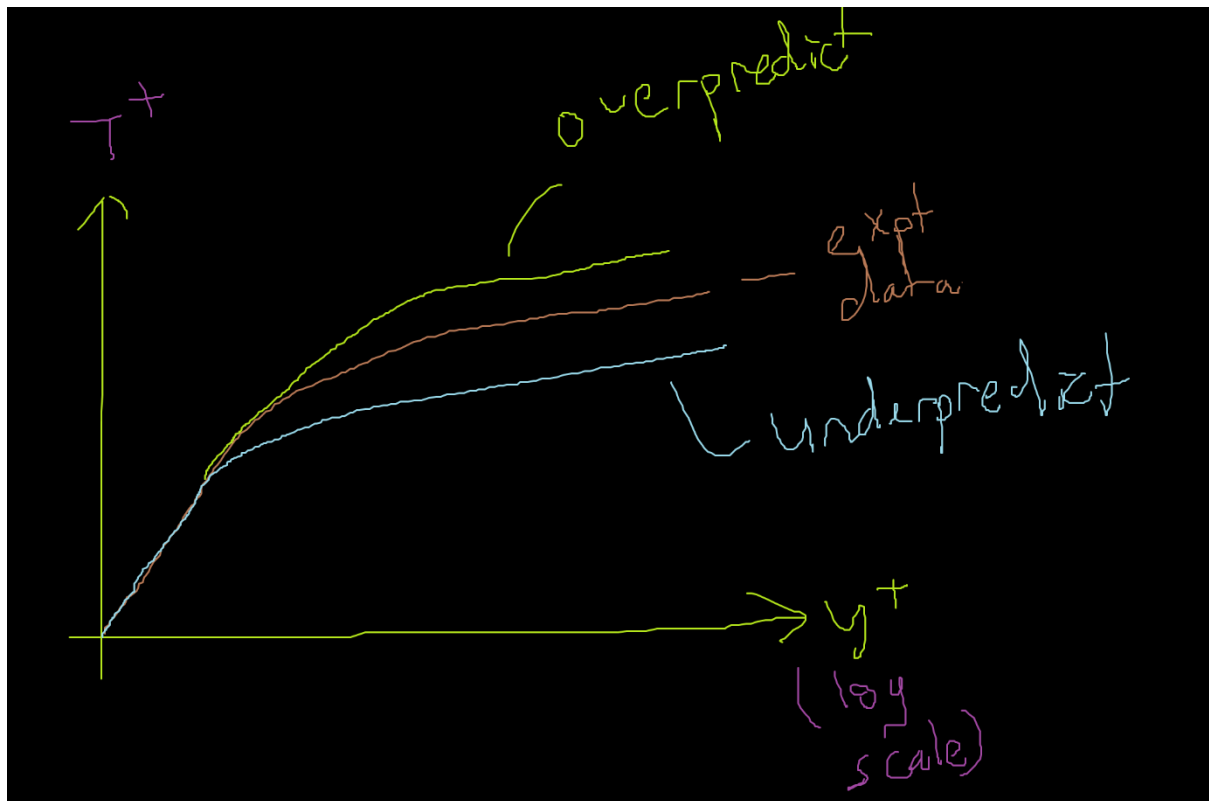 overpredict
T+
expt
data
underpredict
y+
(log
scale)